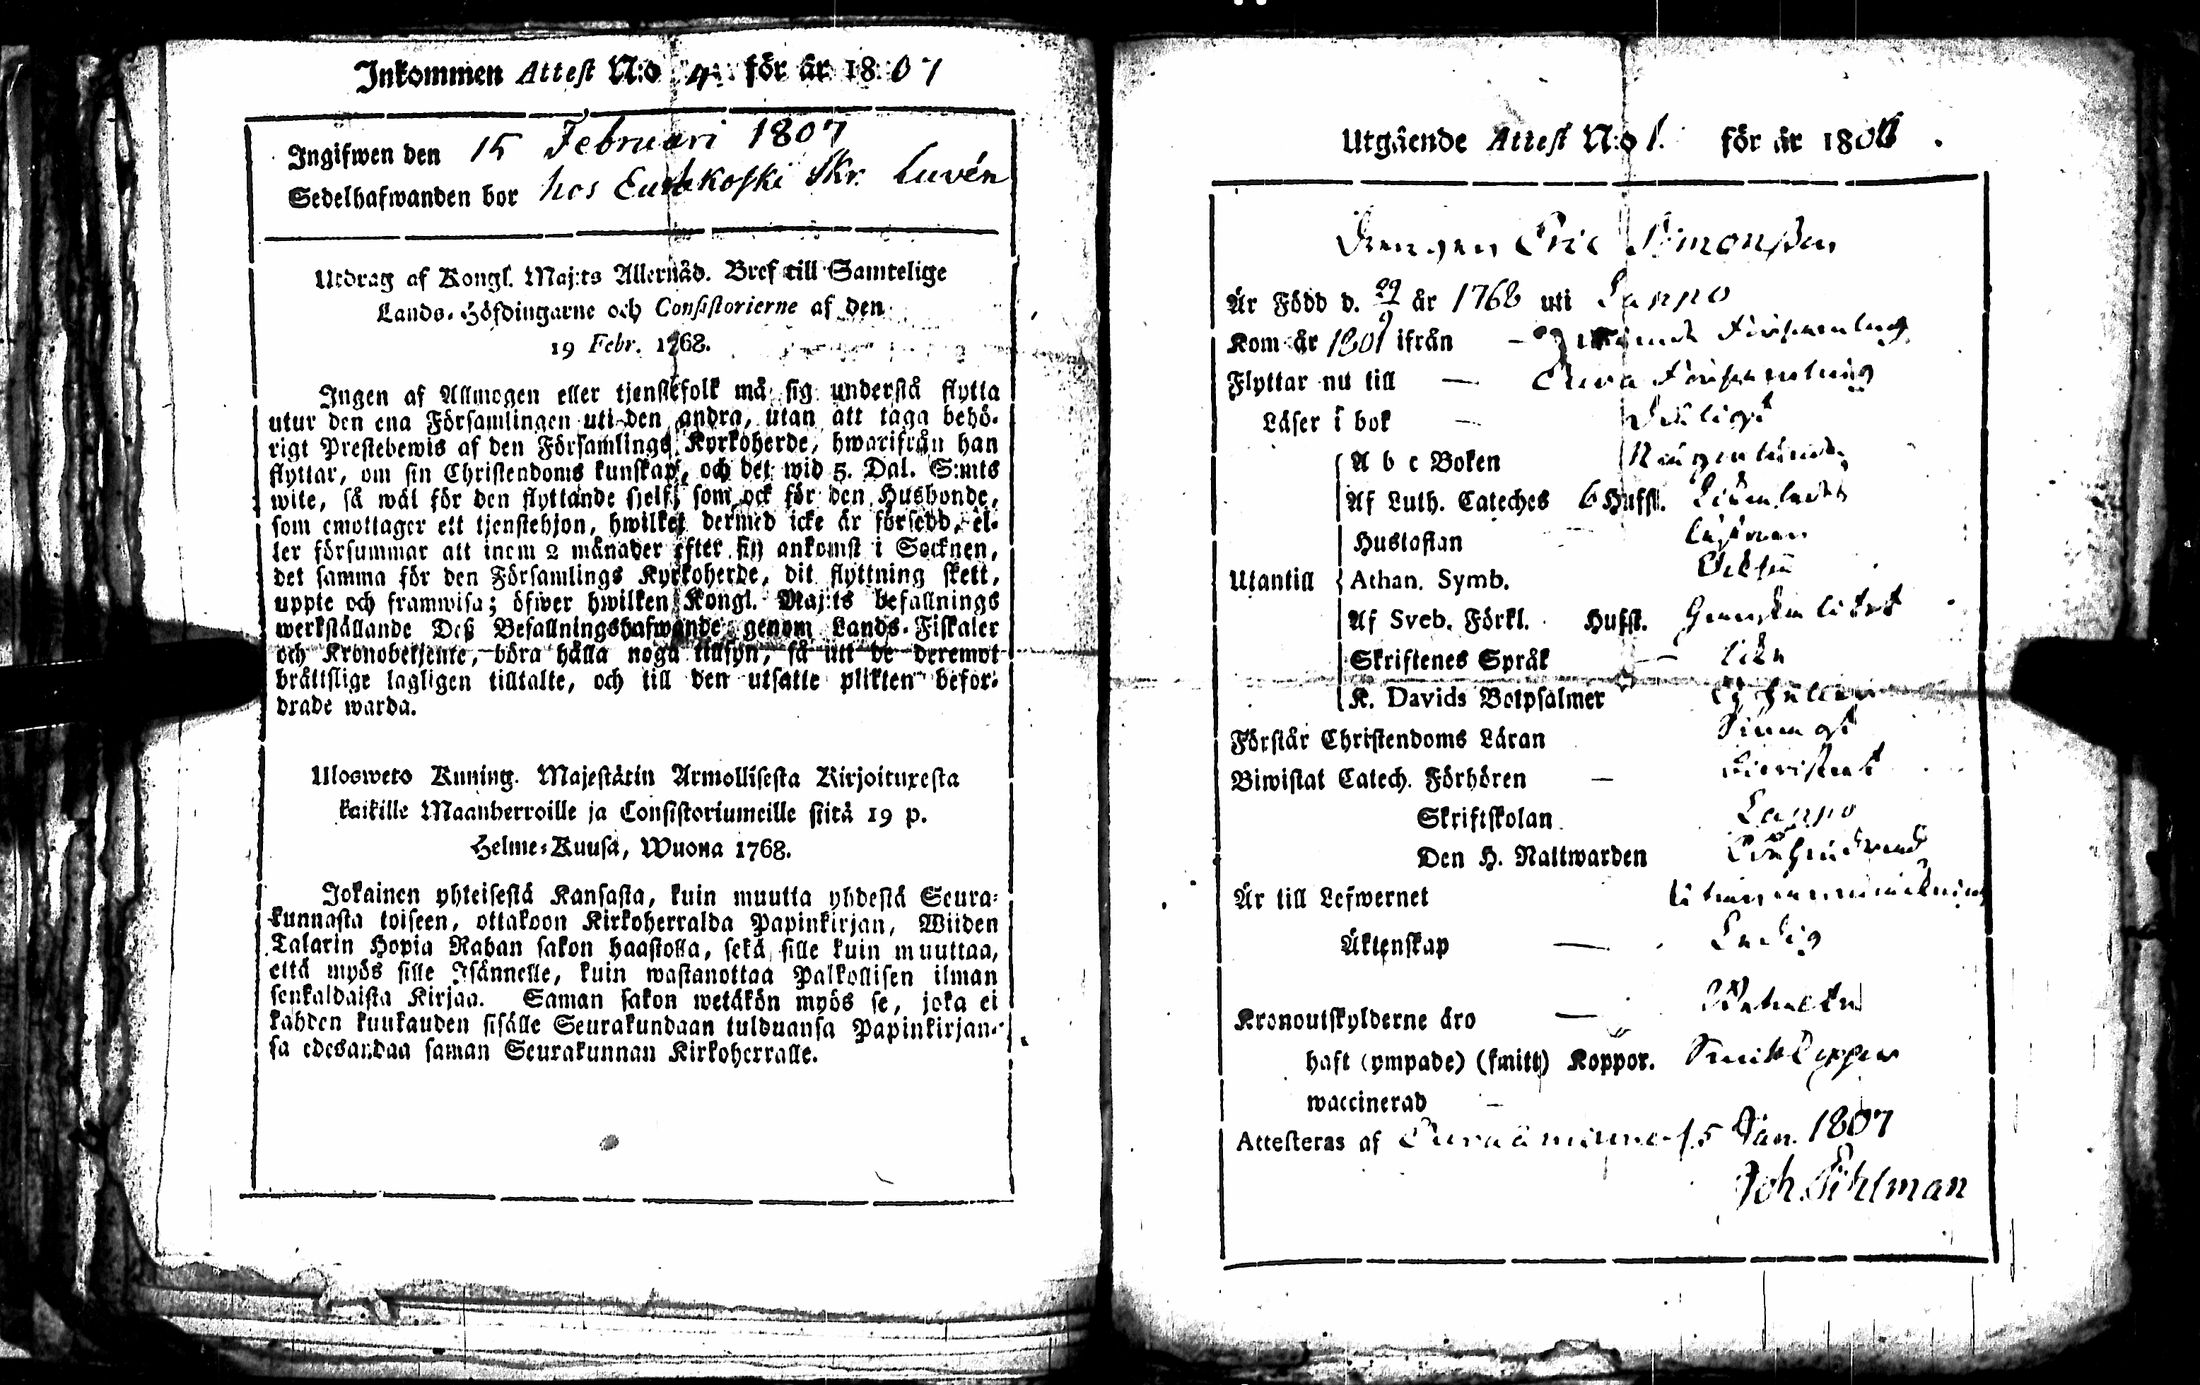 Inkommen Attest N:o 4. för år 1807
Ingifwen den 15 Februari 1807
Sedelhafwanden bor hos Skr. Luvén
Utdrag af Kongl. Maj:ts Allernåd. Bref till Samtelige
Lands-Höfdingarne och Consistorierne af den
19 Febr. 1768.
Ingen af Allmogen eller tjenstefolk må sig understå flytta
utur den ena Församlingen uti den andra, utan att taga behö-
rigt Prestebewis af den Församlings Kyrkoherde, hwarifrån han
flyttar, om sin Christendoms kunskap, och det wid 5. Dal. S:mts
wite, så wäl för den flyttande sjelf, som ock för den Husbonde,
som emottager ett tjenstehjon, hwilket dermed icke är försedd, el-
ler försummar att inom 2 månader efter sin ankomst i Socknen,
det samma för den Församlings Kyrkoherde, dit flyttning skett,
uppte och framwisa; öfwer hwilken Kongl. Maj:ts befallnings
werkställande Deß Befallningshafwande genom Lands-Fiskaler
och Kronobetjente, böra hålla noga tillsyn, så att de deremot
bråttslige lagligen tilltalte, och till den utsatte plikten befor-
drade warda.
Ulosweto Kuning. Majestätin Armollisesta Kirjoituxesta
kaikille Maanherroille ja Consistoriumeille siitä 19 p.
Helme-Kuusa, Wuona 1768.
Jokainen yhteisestä Kansasta, kuin muutta yhdestä Seura-
kunnasta toiseen, ottakoon Kirkoherralda Papinkirjan, Wiiden
Talarin Hopia Rahan sakon haastolla, sekä sille kuin muuttaa,
että myös sille Isännelle, kuin wastanottaa Palkollisen ilman
senkaldaista Kirjaa. Saman sakon wetäkön myös se, joka ei
kahden kuukauden sisälle Seurakundaan tulduansa Papinkirjan-
sa edesandaa saman Seurakunnan Kirkoherralle.
Utgående Attest N:o 1. för år 180
Drengen Eric Simonsson
Är Född d. 29 år 1768 uti Lappo
Kom år 180 ifrån — Församling
Flyttar nu till — Församling
Läser i bok —
A b c Boken
Af Luth. Cateches 6 Hufst.
Hustaflan
Utantill Athan. Symb.
Af Sveb. Förkl. Hufst.
Skriftenes Språk —
K. Davids Botpsalmer
Förstår Christendoms Läran
Biwistat Catech. Förhören —
Skriftskolan Lappo
Den H. Nattwarden
Är till Lefwernet utan anmärkning
Äktenskap — Ledig
Kronoutskylderne äro — Betalta
haft (ympade) (smitt) Koppor. Smittkoppor
waccinerad —
Attesteras af Euraåminne 15 Jan. 1807
Joh. Sihlman